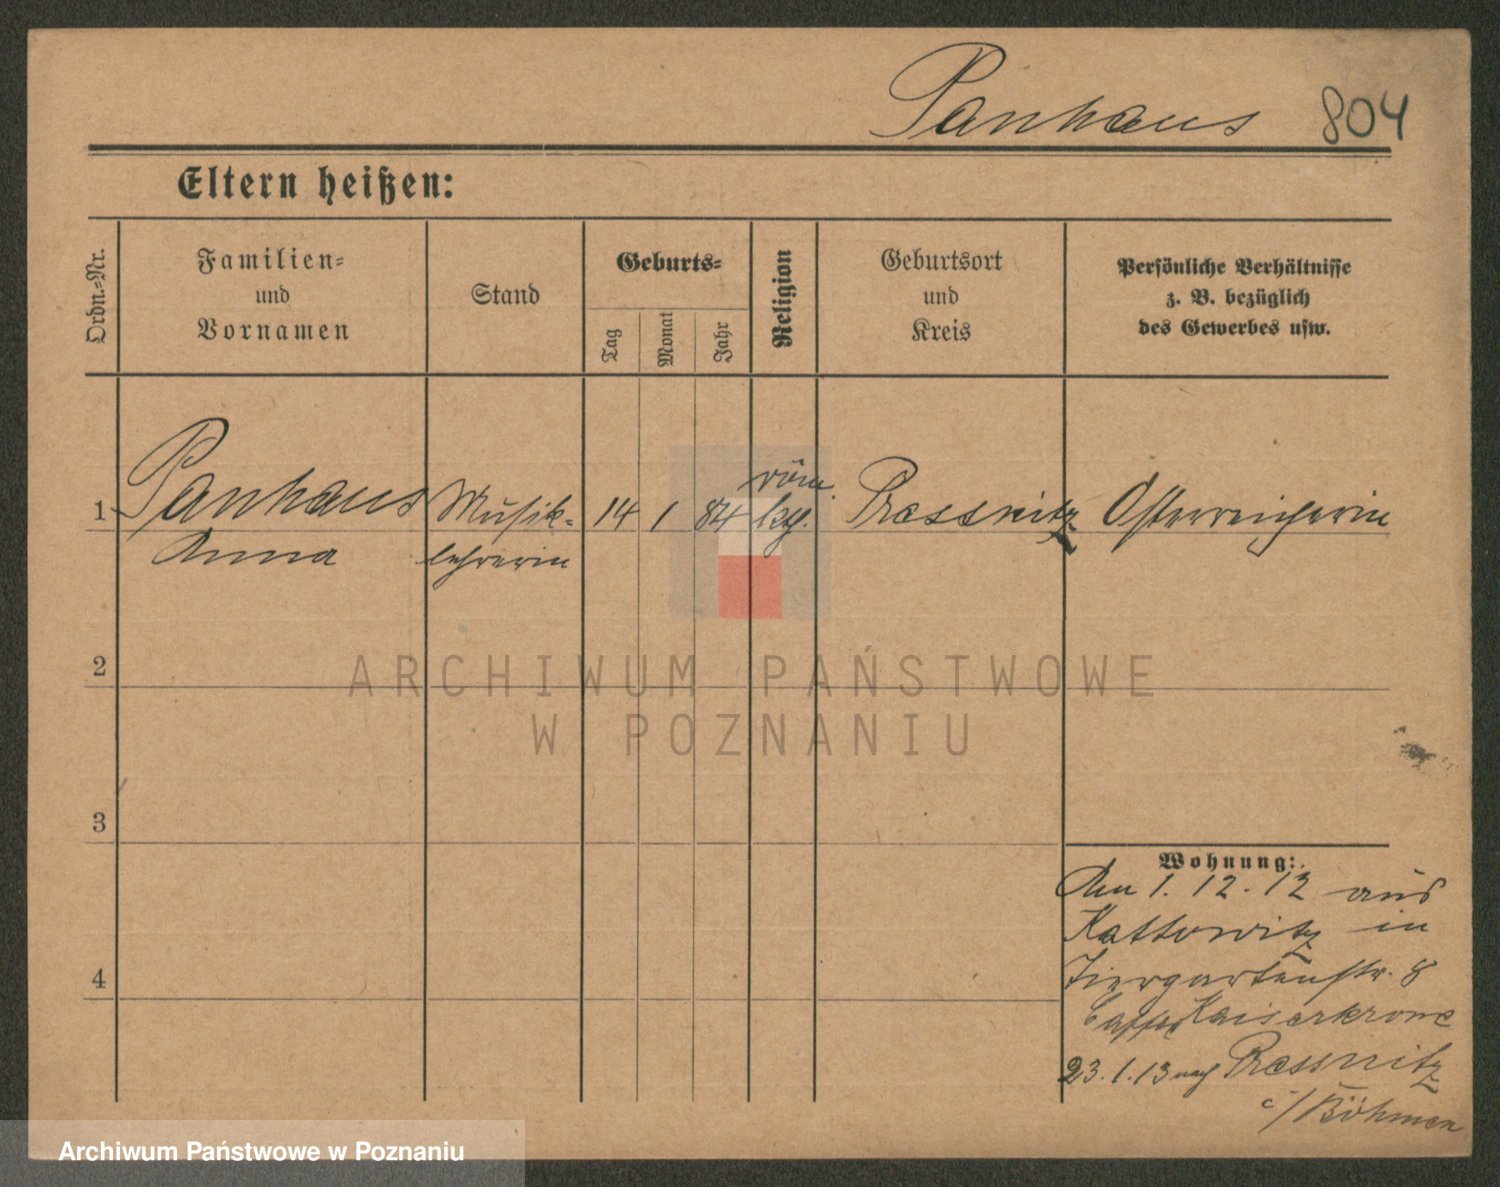 Panhaus 804
Eltern heißen:
Ordn.-Nr.
Familien-
und
Vornamen
Stand
Geburts-
Tag
Monat
Jahr
Religion
Geburtsort
und
Kreis
Persönliche Verhältnisse
z. B. bezüglich
des Gewerbes usw.
1 Panhaus Musik- 14 1 84 röm. Pressnitz Österreicherin
Anna lehrerin
2
ARCHIWUM PAŃSTWOWE
W POZNANIU
3
Wohnung:
Am 1. 12. 12 aus
Kattowitz in
Tiergartenstr. 8
Kaiserkrone
4
23. 1. 13 nach Pressnitz
/Böhmen
Archiwum Państwowe w Poznaniu